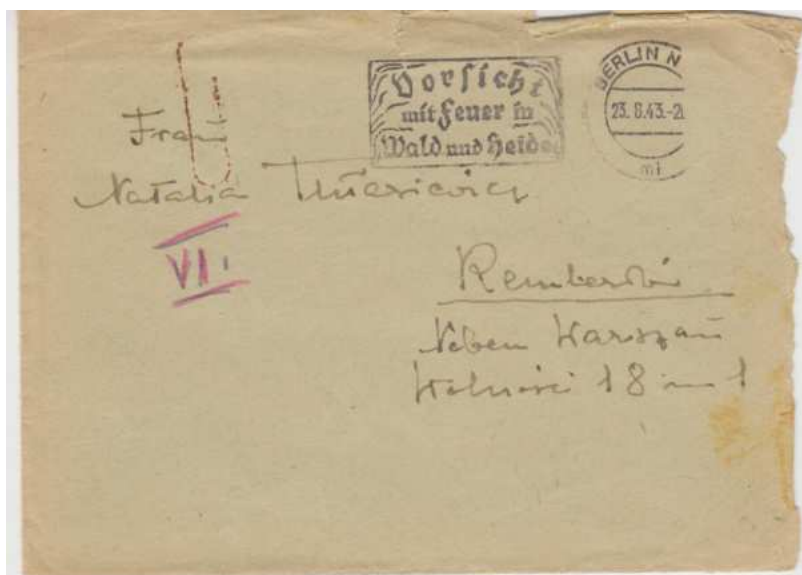 Vorsicht
mit Feuer in
Wald und Heide
BERLIN N
23.8.43.-2
mi
Frau
Natalia
VI.
Rembertów
Neben Warszau
Wolności 18 m 1